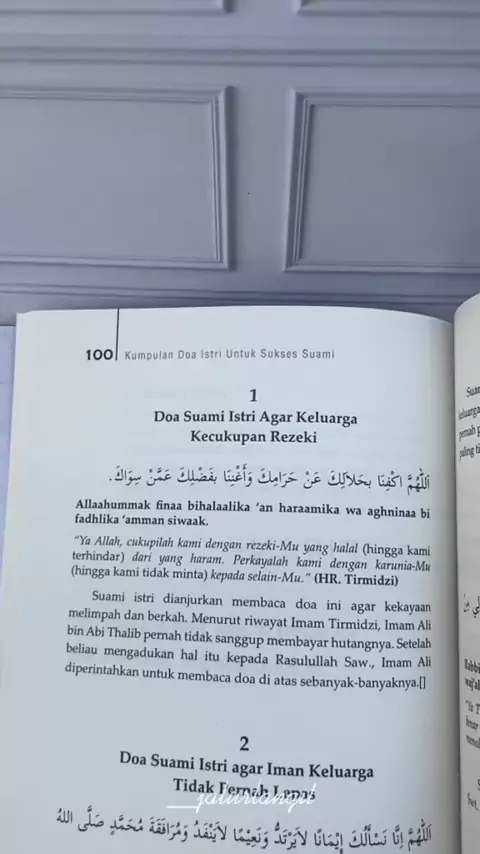 100 Kumpulan Doa Istri Untuk Sukses Suami
1
Doa Suami Istri Agar Keluarga
Kecukupan Rezeki
اَللّٰهُمَّ اكْفِنَا بِحَلاَلِكَ عَنْ حَرَامِكَ وَأَغْنِنَا بِفَضْلِكَ عَمَّنْ سِوَاكَ.
Allaahummak finaa bihalaalika 'an haraamika wa aghninaa bi
fadhlika 'amman siwaak.
"Ya Allah, cukupilah kami dengan rezeki-Mu yang halal (hingga kami
terhindar) dari yang haram. Perkayalah kami dengan karunia-Mu
(hingga kami tidak minta) kepada selain-Mu." (HR. Tirmidzi)
Suami istri dianjurkan membaca doa ini agar kekayaan
melimpah dan berkah. Menurut riwayat Imam Tirmidzi, Imam Ali
bin Abi Thalib pernah tidak sanggup membayar hutangnya. Setelah
beliau mengadukan hal itu kepada Rasulullah Saw., Imam Ali
diperintahkan untuk membaca doa di atas sebanyak-banyaknya.[]
2
Doa Suami Istri agar Iman Keluarga
Tidak Pernah Lepas
اَللّٰهُمَّ إِنَّا نَسْأَلُكَ إِيْمَانًا لاَيَرْتَدُّ وَنَعِيْمًا لاَيَنْفَدُ وَمُرَافَقَةَ مُحَمَّدٍ صَلَّى اللهُ